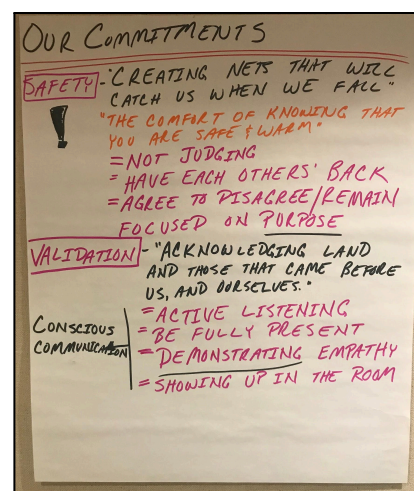 OUR COMMITMENTS
SAFETY - "CREATING NETS THAT WILL
CATCH US WHEN WE FALL"
! "THE COMFORT OF KNOWING THAT
YOU ARE SAFE & WARM"
= NOT JUDGING
= HAVE EACH OTHERS' BACK
= AGREE TO DISAGREE/REMAIN
FOCUSED ON PURPOSE
VALIDATION - "ACKNOWLEDGING LAND
AND THOSE THAT CAME BEFORE
US, AND OURSELVES."
= ACTIVE LISTENING
CONSCIOUS = BE FULLY PRESENT
COMMUNICATION = DEMONSTRATING EMPATHY
= SHOWING UP IN THE ROOM